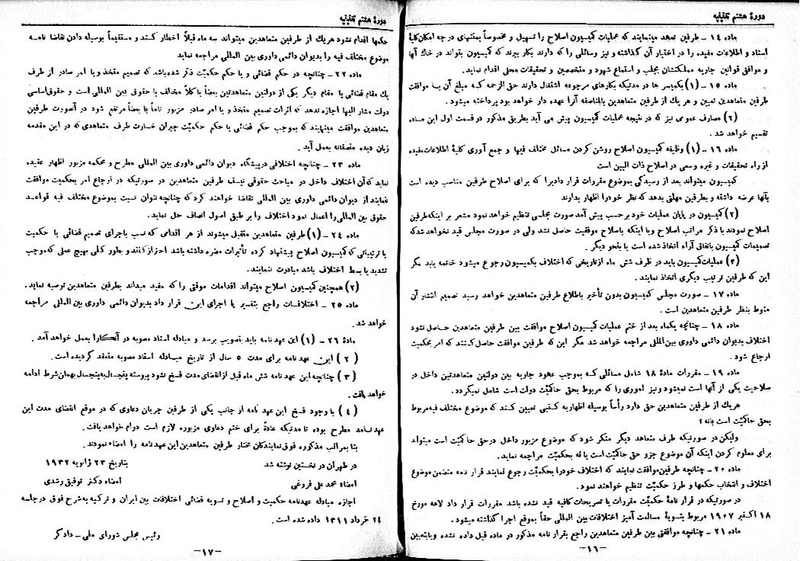 دورهٔ هشتم تقنینیه
ماده ۱۴ - طرفین تعهد مینمایند که عملیات کمیسیون اصلاح را تسهیل و مخصوصاً بمنتهای درجه امکان کلیهٔ
اسناد و اطلاعات مفیده را در اختیار آن گذاشته و نیز وسائلی را که دارند بکار برند که کمیسیون بتواند در خاک آنها
و موافق قوانین جاریه مملکتشان بجلب و استماع شهود و متخصصین و تحقیقات محلی اقدام نماید.
ماده ۱۵ - (۱) یکمیسر ها در مدتیکه بکارهای مرجوعه اشتغال دارند حق الزحمه که مبلغ آن با موافقت
طرفین متعاهدین تعیین و هر یک از طرفین متعاهدین بالمناصفه آنرا عهده دار خواهد بود پرداخته میشود.
(۲) مصارف عمومی نیز که در نتیجه عملیات کمیسیون پیش می آید بطریق مذکور در قسمت اول این ماده
تقسیم خواهد شد.
ماده ۱۶ - (۱) وظیفه کمیسیون اصلاح روشن کردن مسائل مختلف فیها و جمع آوری کلیهٔ اطلاعات مفیده
از راه تحقیقات و غیره وسعی در اصلاح ذات البین است
کمیسیون میتواند بعد از رسیدگی بموضوع مقررات قرار دادیرا که برای اصلاح طرفین مناسب دیده است
بآنها عرضه داشته و بطرفین مهلتی بدهد که نظر خود را اظهار بدارند
(۲) کمیسیون در پایان عملیات خود بر حسب پیش آمد صورت مجلسی تنظیم خواهد نمود مشعر بر اینکه طرفین
اصلاح نمودند با ذکر مراتب اصلاح و یا اینکه باصلاح موفقیت حاصل نشد ولی در صورت مجلس قید نخواهد شد که
تصمیمات کمیسیون باتفاق آراء اتخاذ شده است یا بنحو دیگر.
(۳) عملیات کمیسیون باید در ظرف شش ماه از تاریخی که اختلاف بکمیسیون رجوع میشود خاتمه یابد مگر
این که طرفین ترتیب دیگری اتخاذ نمایند.
ماده ۱۷ - صورت مجلس کمیسیون بدون تأخیر باطلاع طرفین متعاهدین خواهد رسید تصمیم انتشار آن
منوط بنظر طرفین متعاهدین است.
ماده ۱۸ - چنانچه یکماه بعد از ختم عملیات کمیسیون اصلاح موافقت بین طرفین متعاهدین حاصل نشود
اختلاف بدیوان دائمی داوری بین المللی مراجعه خواهد شد مگر این که طرفین موافقت حاصل کنند که امر بحکمیت
ارجاع شود.
ماده ۱۹ - مقررات مادهٔ ۱۸ شامل مسائلی که بموجب عهود جاریه بین دولتین متعاهدتین داخل در
صلاحیت یکی از آنها است نمیشود و نیز اموری را که مربوط بحق حاکمیت دولت است شامل نمیگردد.
هر یک از طرفین متعاهدین حق دارد رأساً بوسیله اظهاریه کتبی تعیین کند که موضوع مختلف فیه مربوط
بحق حاکمیت است یا نه؟
ولیکن در صورتیکه طرف متعاهد دیگر منکر شود که موضوع مزبور داخل در حق حاکمیت است میتواند
برای معلوم کردن اینکه آن موضوع جزو حق حاکمیت است یا نه بحکمیت مراجعه نماید.
ماده ۲۰ - چنانچه طرفین موافقت نمایند که اختلاف خود را بحکمیت رجوع نمایند قرار نامه متضمن موضوع
اختلاف و انتخاب حکمها و طرز حکمیت تنظیم خواهند نمود.
در صورتیکه در قرار نامهٔ حکمیت مقررات یا تصریحات کافیه قید نشده باشد مقررات قرار داد لاهه مورخ
۱۸ اکتبر ۱۹۰۷ مربوط بتسویهٔ مسالمت آمیز اختلافات بین المللی حقاً بموقع اجرا گذاشته میشود.
ماده ۲۱ - چنانچه موافقتی بین طرفین متعاهدین راجع بقرار نامه مذکور در ماده قبل داده نشده و یا بتعیین
-۱۶-
دورهٔ هشتم تقنینیه
حکمها اقدام نشود هر یک از طرفین متعاهدین میتواند سه ماه قبلاً اخطار کند و مستقیماً بوسیله دادن تقاضا نامه
موضوع مختلف فیه را بدیوان دائمی داوری بین المللی مراجعه نماید
ماده ۲۲ - چنانچه در حکم قضائی و یا حکم حکمیت ذکر شده باشد که تصمیم متخذ و یا امر صادر از طرف
یك مقام قضائی یا مقام دیگر یکی از دولتین متعاهدتین بعضاً یا کلاً مخالف با حقوق بین المللی است و حقوق اساسی
دولت مشار الیها اجازه ندهد که اثرات تصمیم متخذ و یا امر صادر مزبور تماماً یا بعضاً مرتفع شود در آنصورت طرفین
متعاهدین موافقت مینمایند که بموجب حکم قضائی یا حکم حکمیت جبران خسارت طرف متعاهدی که در این مقدمه
زیان دیده منصفانه بعمل آید.
ماده ۲۳ - چنانچه اختلافی در پیشگاه دیوان دائمی داوری بین المللی مطرح و محکمه مزبور اظهار عقیده
نماید که آن اختلاف داخل در مباحث حقوقی نیست طرفین متعاهدین در صورتیکه در ارجاع امر بحکمیت موافقت
ننمایند از دیوان دائمی داوری بین المللی تقاضا خواهند کرد که چنانچه نتوان نسبت بموضوع مختلف فیه قواعد
حقوق بین المللی را اعمال نمود اختلاف را بر طبق اصول انصاف حل نماید.
ماده ۲۴ - (۱) طرفین متعاهدین متقبل میشوند از هر اقدامی که نسبت باجرای تصمیم قضائی یا حکمیت
یا ترتیباتی که کمیسیون اصلاح پیشنهاد کرده تأثیرات مضره داشته باشد احتراز کنند و بطور کلی بهیچ عملی که موجب
تشدید یا بسط اختلاف باشد مبادرت ننمایند.
(۲) همچنین کمیسیون اصلاح میتواند اقدامات موقتی را که مفید میداند بطرفین متعاهدین توصیه نماید.
ماده ۲۵ - اختلافات راجع بتفسیر یا اجرای این قرار داد بدیوان دائمی داوری بین المللی مراجعه
خواهد شد.
ماده ۲۶ - (۱) این عهد نامه باید بتصویب برسد و مبادله اسناد مصوبه در آنکارا بعمل خواهد آمد.
(۲) این عهد نامه برای مدت ۵ سال از تاریخ مبادله اسناد مصوبه منعقد گردیده است.
(۳) چنانچه این عهدنامه شش ماه قبل از انقضای مدت فسخ نشود پیوسته پنجسال به پنجسال بهمان شرط ادامه
خواهد یافت.
(۴) با وجود فسخ این عهد نامه از جانب یکی از طرفین جریان دعاوی که در موقع انقضای مدت این
عهدنامه مطرح بوده تا مدتیکه عادةً برای ختم دعاوی مزبور لازم است دوام خواهد یافت.
بنا بمراتب مذکوره فوق نمایندگان مختار طرفین متعاهدین این عهد نامه را امضاء نمودند.
در طهران در نخستین نوشته شد
بتاریخ ۲۳ ژانویه ۱۹۳۲
امضاء محمد علی فروغی
امضاء دکتر توفیق رشدی
اجازه مبادله عهدنامه حکمیت و اصلاح و تسویه قضائی اختلافات بین ایران و ترکیه بشرح فوق در جلسه
۲۴ خرداد ۱۳۱۱ داده شده است.
رئیس مجلس شورای ملی - دادگر
-۱۷-